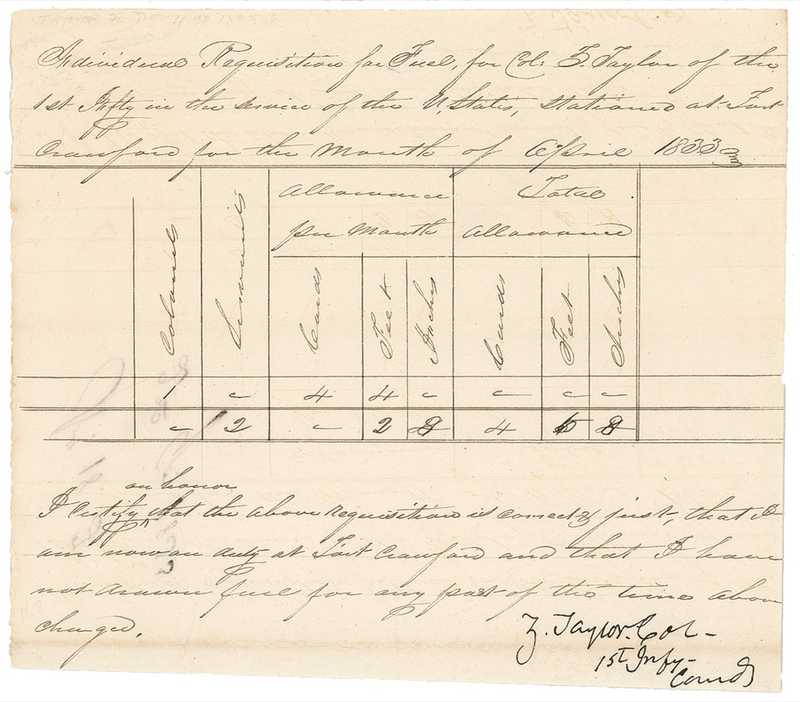 Individual Requisition for Fuel, for Col: Z. Taylor of the
1st Infty in the service of the U. States, stationed at Fort
Crawford for the Month of April 1833
Colonels
Servants
Allowance
per Month
Total
Allowance
Cords
Feet
Inches
Cords
Feet
Inches
1 – 4 4 – – – –
– 2 – 2 8 4 6 8
on honor
I certify ^ that the above requisition is correct & just, that I
am now on duty at Fort Crawford and that I have
not drawn fuel for any part of the time above
charged.
Z. Taylor. Col –
1st Infy –
Comdg